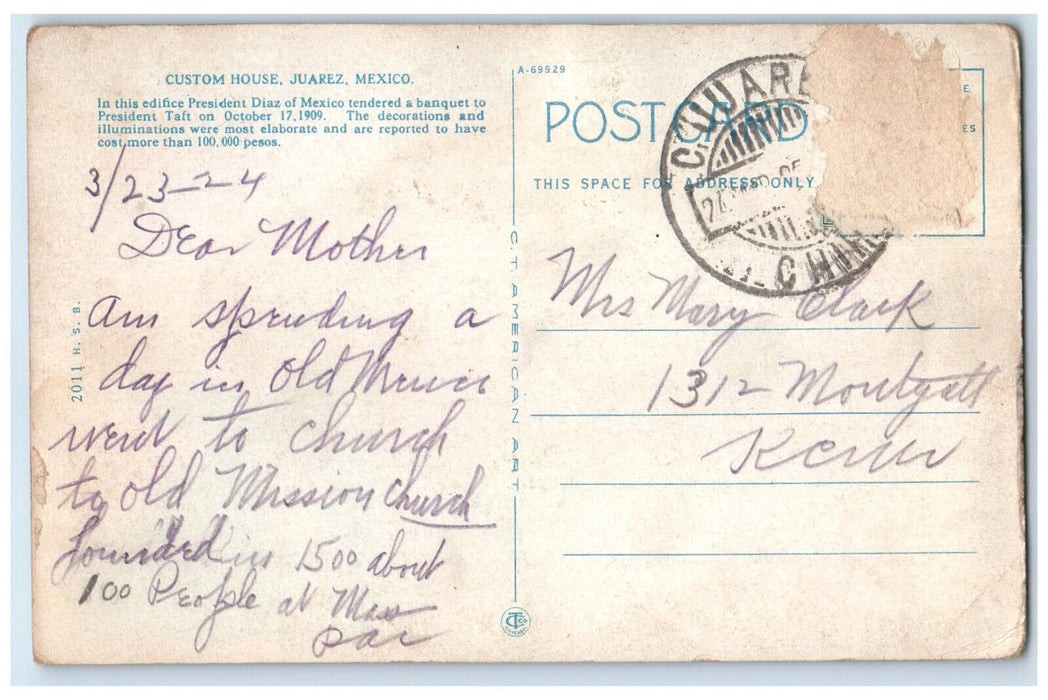 CUSTOM HOUSE, JUAREZ, MEXICO.
In this edifice President Diaz of Mexico tendered a banquet to
President Taft on October 17, 1909. The decorations and
illuminations were most elaborate and are reported to have
cost more than 100,000 pesos.
3/23-24
Dear Mother
Am spending a
day in Old Mexico
went to church
to old Mission church
founded in 1500 about
100 People at Mass
2011 H. S. B.
C. T. AMERICAN ART
A-69929
POST CARD
THIS SPACE FOR ADDRESS ONLY
C. JUARE
CHIH
Mrs Mary Clark
1312
CT Co
CHICAGO